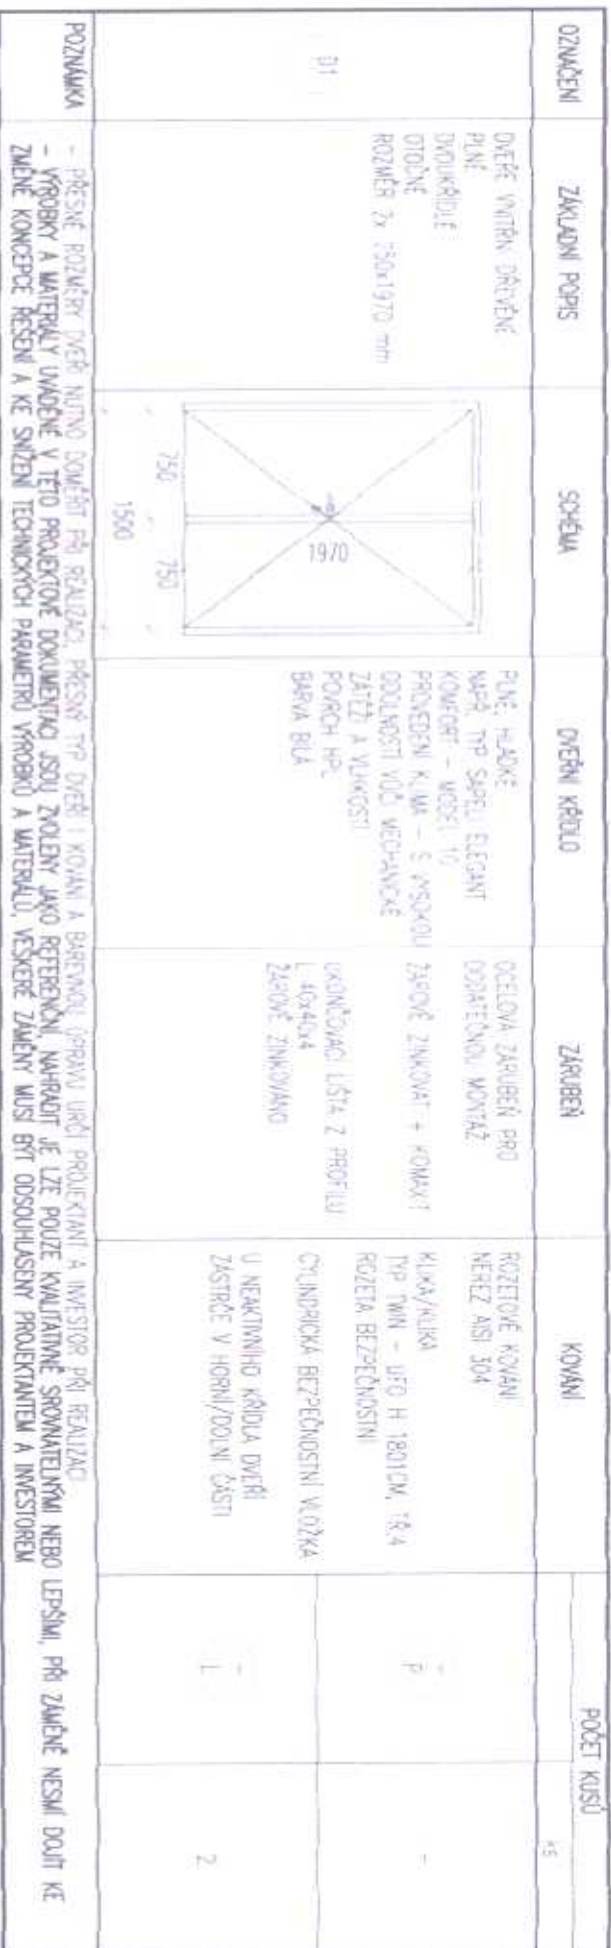 OZNAČENÍ
ZÁKLADNÍ POPIS
SCHÉMA
DVEŘNÍ KŘÍDLO
ZÁRUBEŇ
KOVÁNÍ
POČET KUSŮ
KS
D1
DVEŘE VNITŘN DŘEVĚNÉ
PLNÉ
DVOUKŘÍDLÉ
OTOČNÉ
ROZMĚR 2x 750x1970 mm
1970
750
750
1500
PLNÉ, HLADKÉ
NAPŘ. TYP SAPELI ELEGANT
KOMFORT - MODEL 10
PROVEDENÍ KLIMA - S VYSOKOU
ODOLNOSTÍ VŮČI MECHANICKÉ
ZÁTĚŽI A VLHKOSTI
POVRCH HPL
BARVA BÍLÁ
OCELOVÁ ZÁRUBEŇ PRO
DODATEČNOU MONTÁŽ
ŽÁROVĚ ZINKOVAT + KOMAXIT
UKONČOVACÍ LIŠTA Z PROFILU
L 40x40x4
ŽÁROVĚ ZINKOVÁNO
ROZETOVÉ KOVÁNÍ
NEREZ AISI 304
KLIKA/KLIKA
TYP TWIN - UFO H 1801CM, TŘ.4
ROZETA BEZPEČNOSTNÍ
CYLINDRICKÁ BEZPEČNOSTNÍ VLOŽKA
U NEAKTIVNÍHO KŘÍDLA DVEŘÍ
ZÁSTRČE V HORNÍ/DOLNÍ ČÁSTI
P
-
L
2
POZNÁMKA
- PŘESNÉ ROZMĚRY DVEŘÍ NUTNO DOMĚŘIT PŘI REALIZACI, PŘESNÝ TYP DVEŘÍ I KOVÁNÍ A BAREVNOU ÚPRAVU URČÍ PROJEKTANT A INVESTOR PŘI REALIZACI
- VÝROBKY A MATERIÁLY UVÁDĚNÉ V TÉTO PROJEKTOVÉ DOKUMENTACI JSOU ZVOLENY JAKO REFERENČNÍ, NAHRADIT JE LZE POUZE KVALITATIVNĚ SROVNATELNÝMI NEBO LEPŠÍMI, PŘI ZÁMĚNĚ NESMÍ DOJÍT KE
ZMĚNĚ KONCEPCE ŘEŠENÍ A KE SNÍŽENÍ TECHNICKÝCH PARAMETRŮ VÝROBKŮ A MATERIÁLŮ, VEŠKERÉ ZÁMĚNY MUSÍ BÝT ODSOUHLASENY PROJEKTANTEM A INVESTOREM